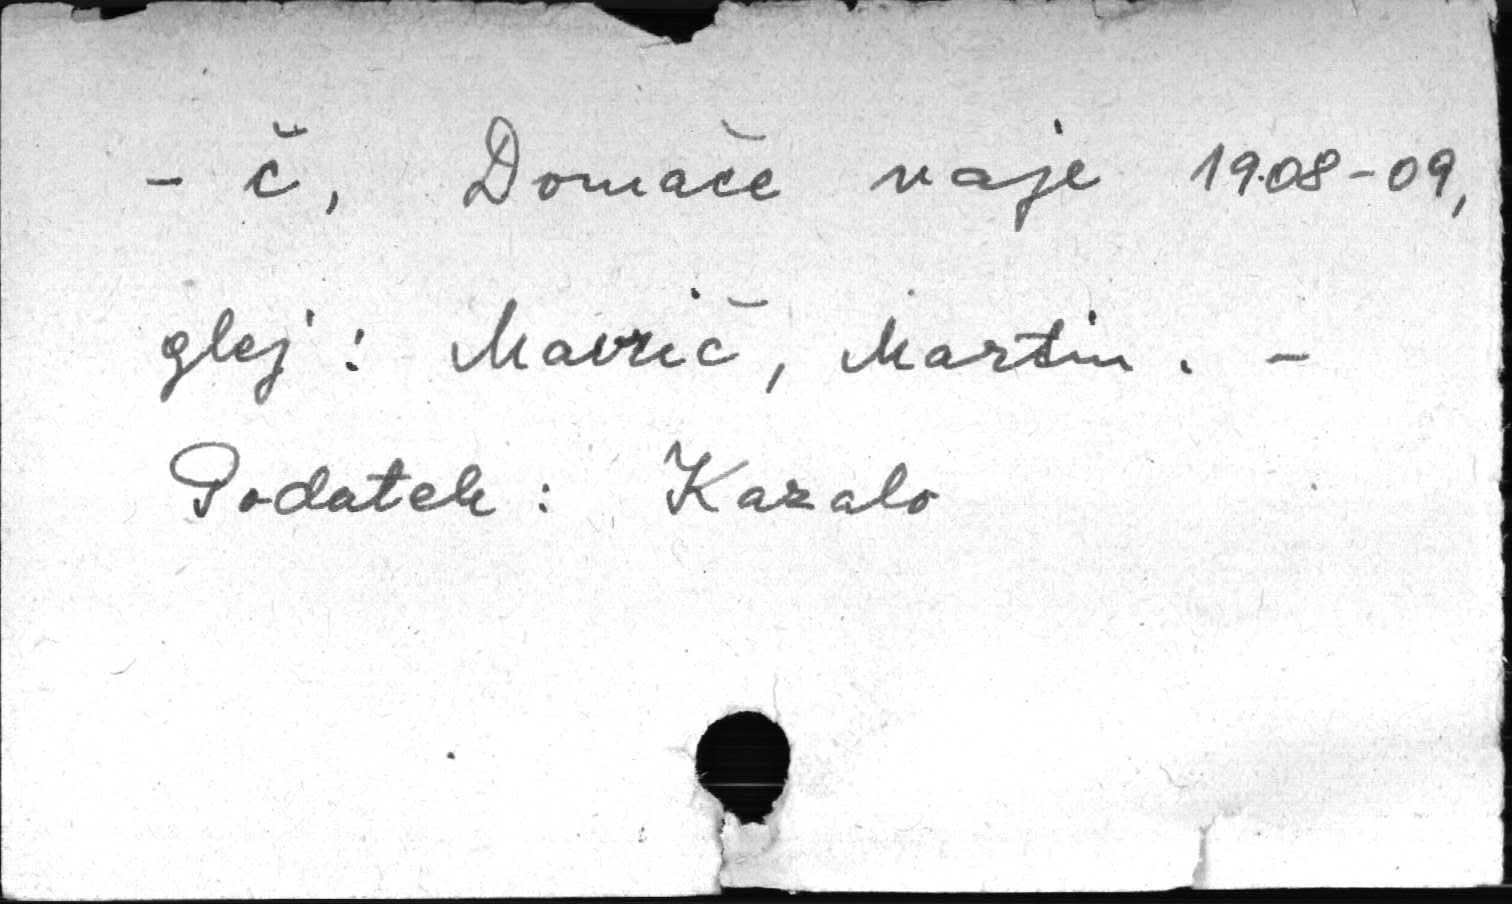 - č, Domače vaje 1908-09,
glej: Mavrič, Martin. -
Podatek: Kazalo